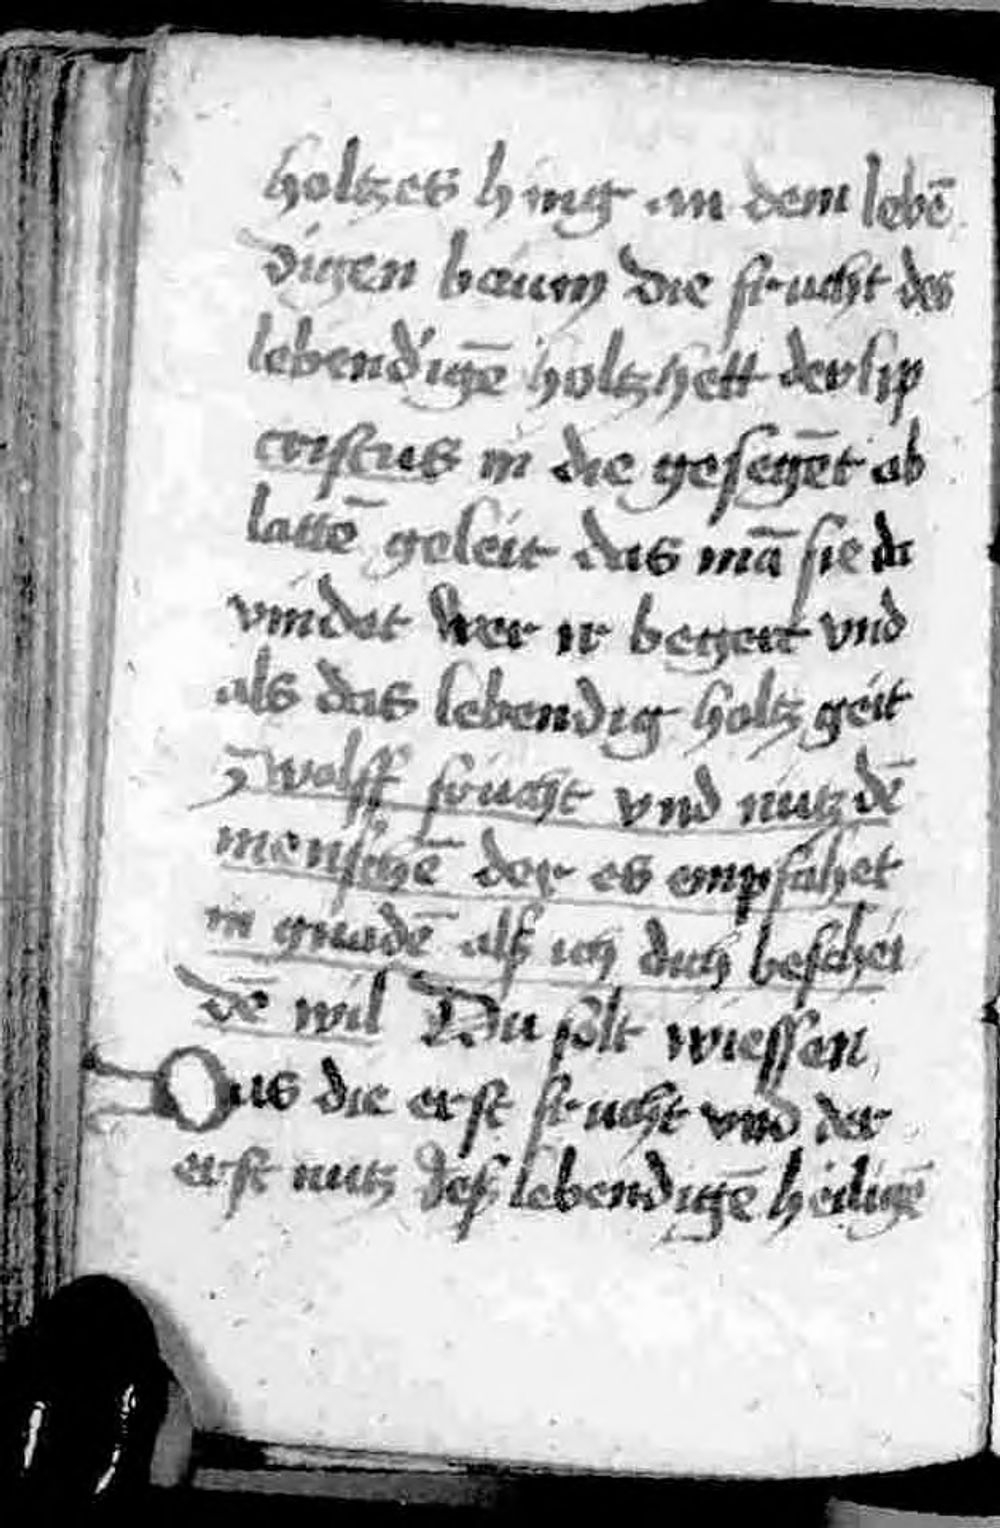 holtzes hing an dem lebē
digen baum die frucht des
lebendigē holtz hett der lip
cristus in die gesegēt ab
lattē geleit das mā sie da
vindet wer ir begert vnd
als das lebendig holtz geit
zwolff frucht vnd nutz dē
menschē der es empfahet
in gnadē als ich dich beschei
dē wil Du solt wiessen
Das die erst frucht vnd der
erst nutz des lebendigē heiligē